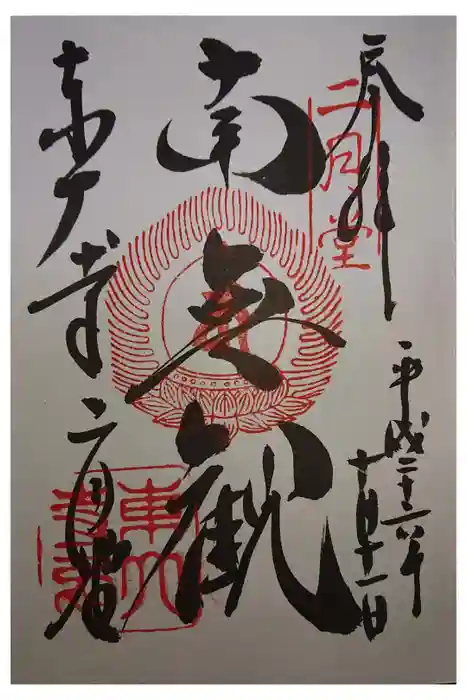 奉拝
二月堂
平成二十六年
十月十一日
南無観
東大寺二月堂